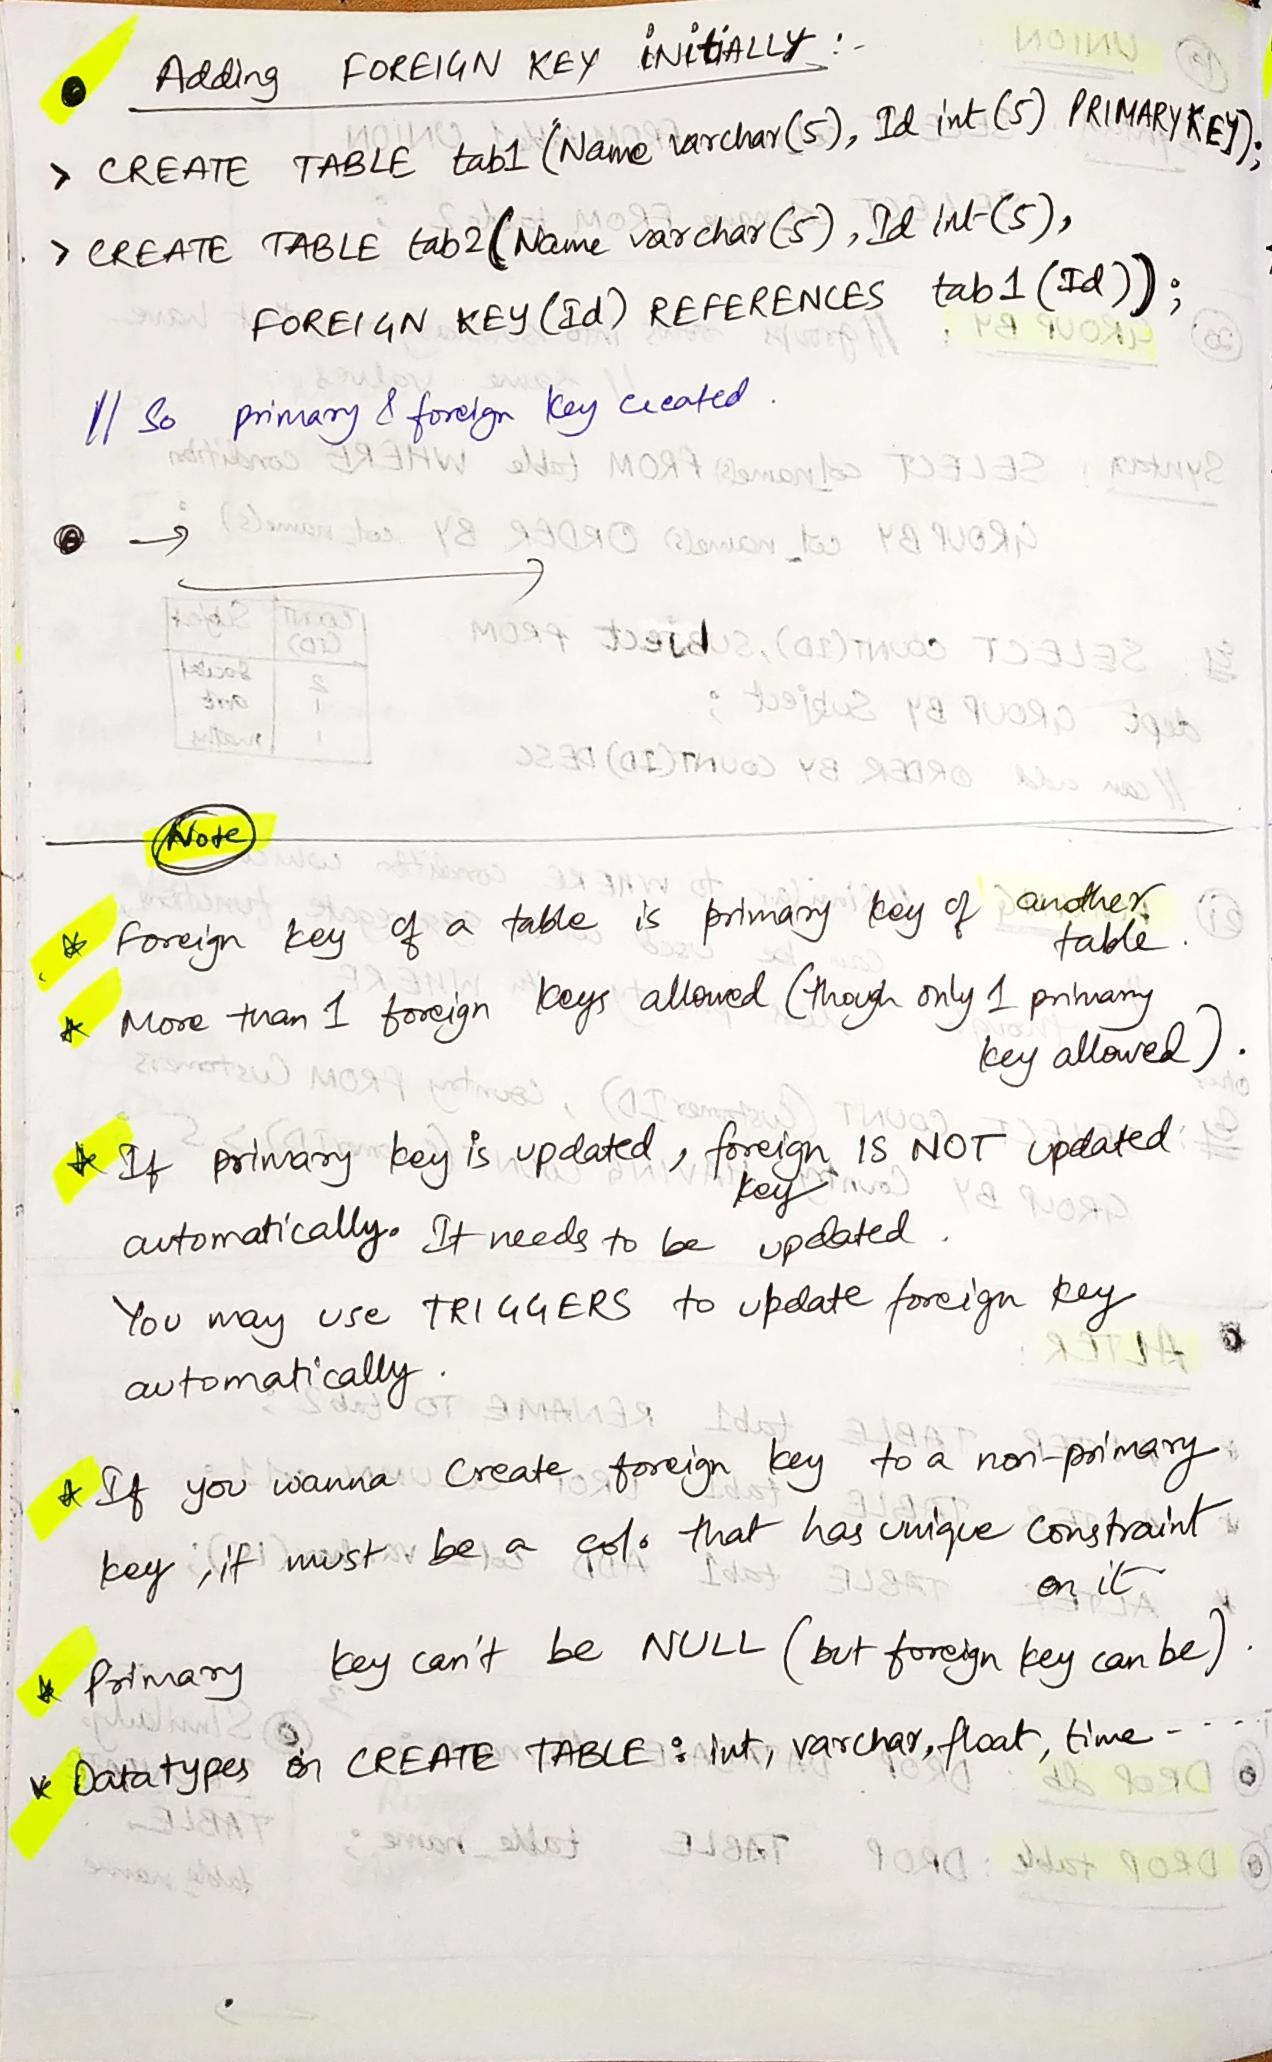 Adding FOREIGN KEY INITIALLY :-
> CREATE TABLE tab1 (Name varchar(5), Id int(5) PRIMARY KEY);
> CREATE TABLE tab2 (Name varchar(5), Id int(5),
FOREIGN KEY (Id) REFERENCES tab1 (Id));
// So primary & foreign key created.
Note
* Foreign key of a table is primary key of another
table.
* More than 1 foreign keys allowed (though only 1 primary
key allowed).
* If primary key is updated, foreign IS NOT updated
key
automatically. It needs to be updated.
You may use TRIGGERS to update foreign key
automatically.
* If you wanna create foreign key to a non-primary
key, it must be a col. that has unique constraint
on it
* Primary key can't be NULL (but foreign key can be).
* Datatypes in CREATE TABLE : int, varchar, float, time - - - -